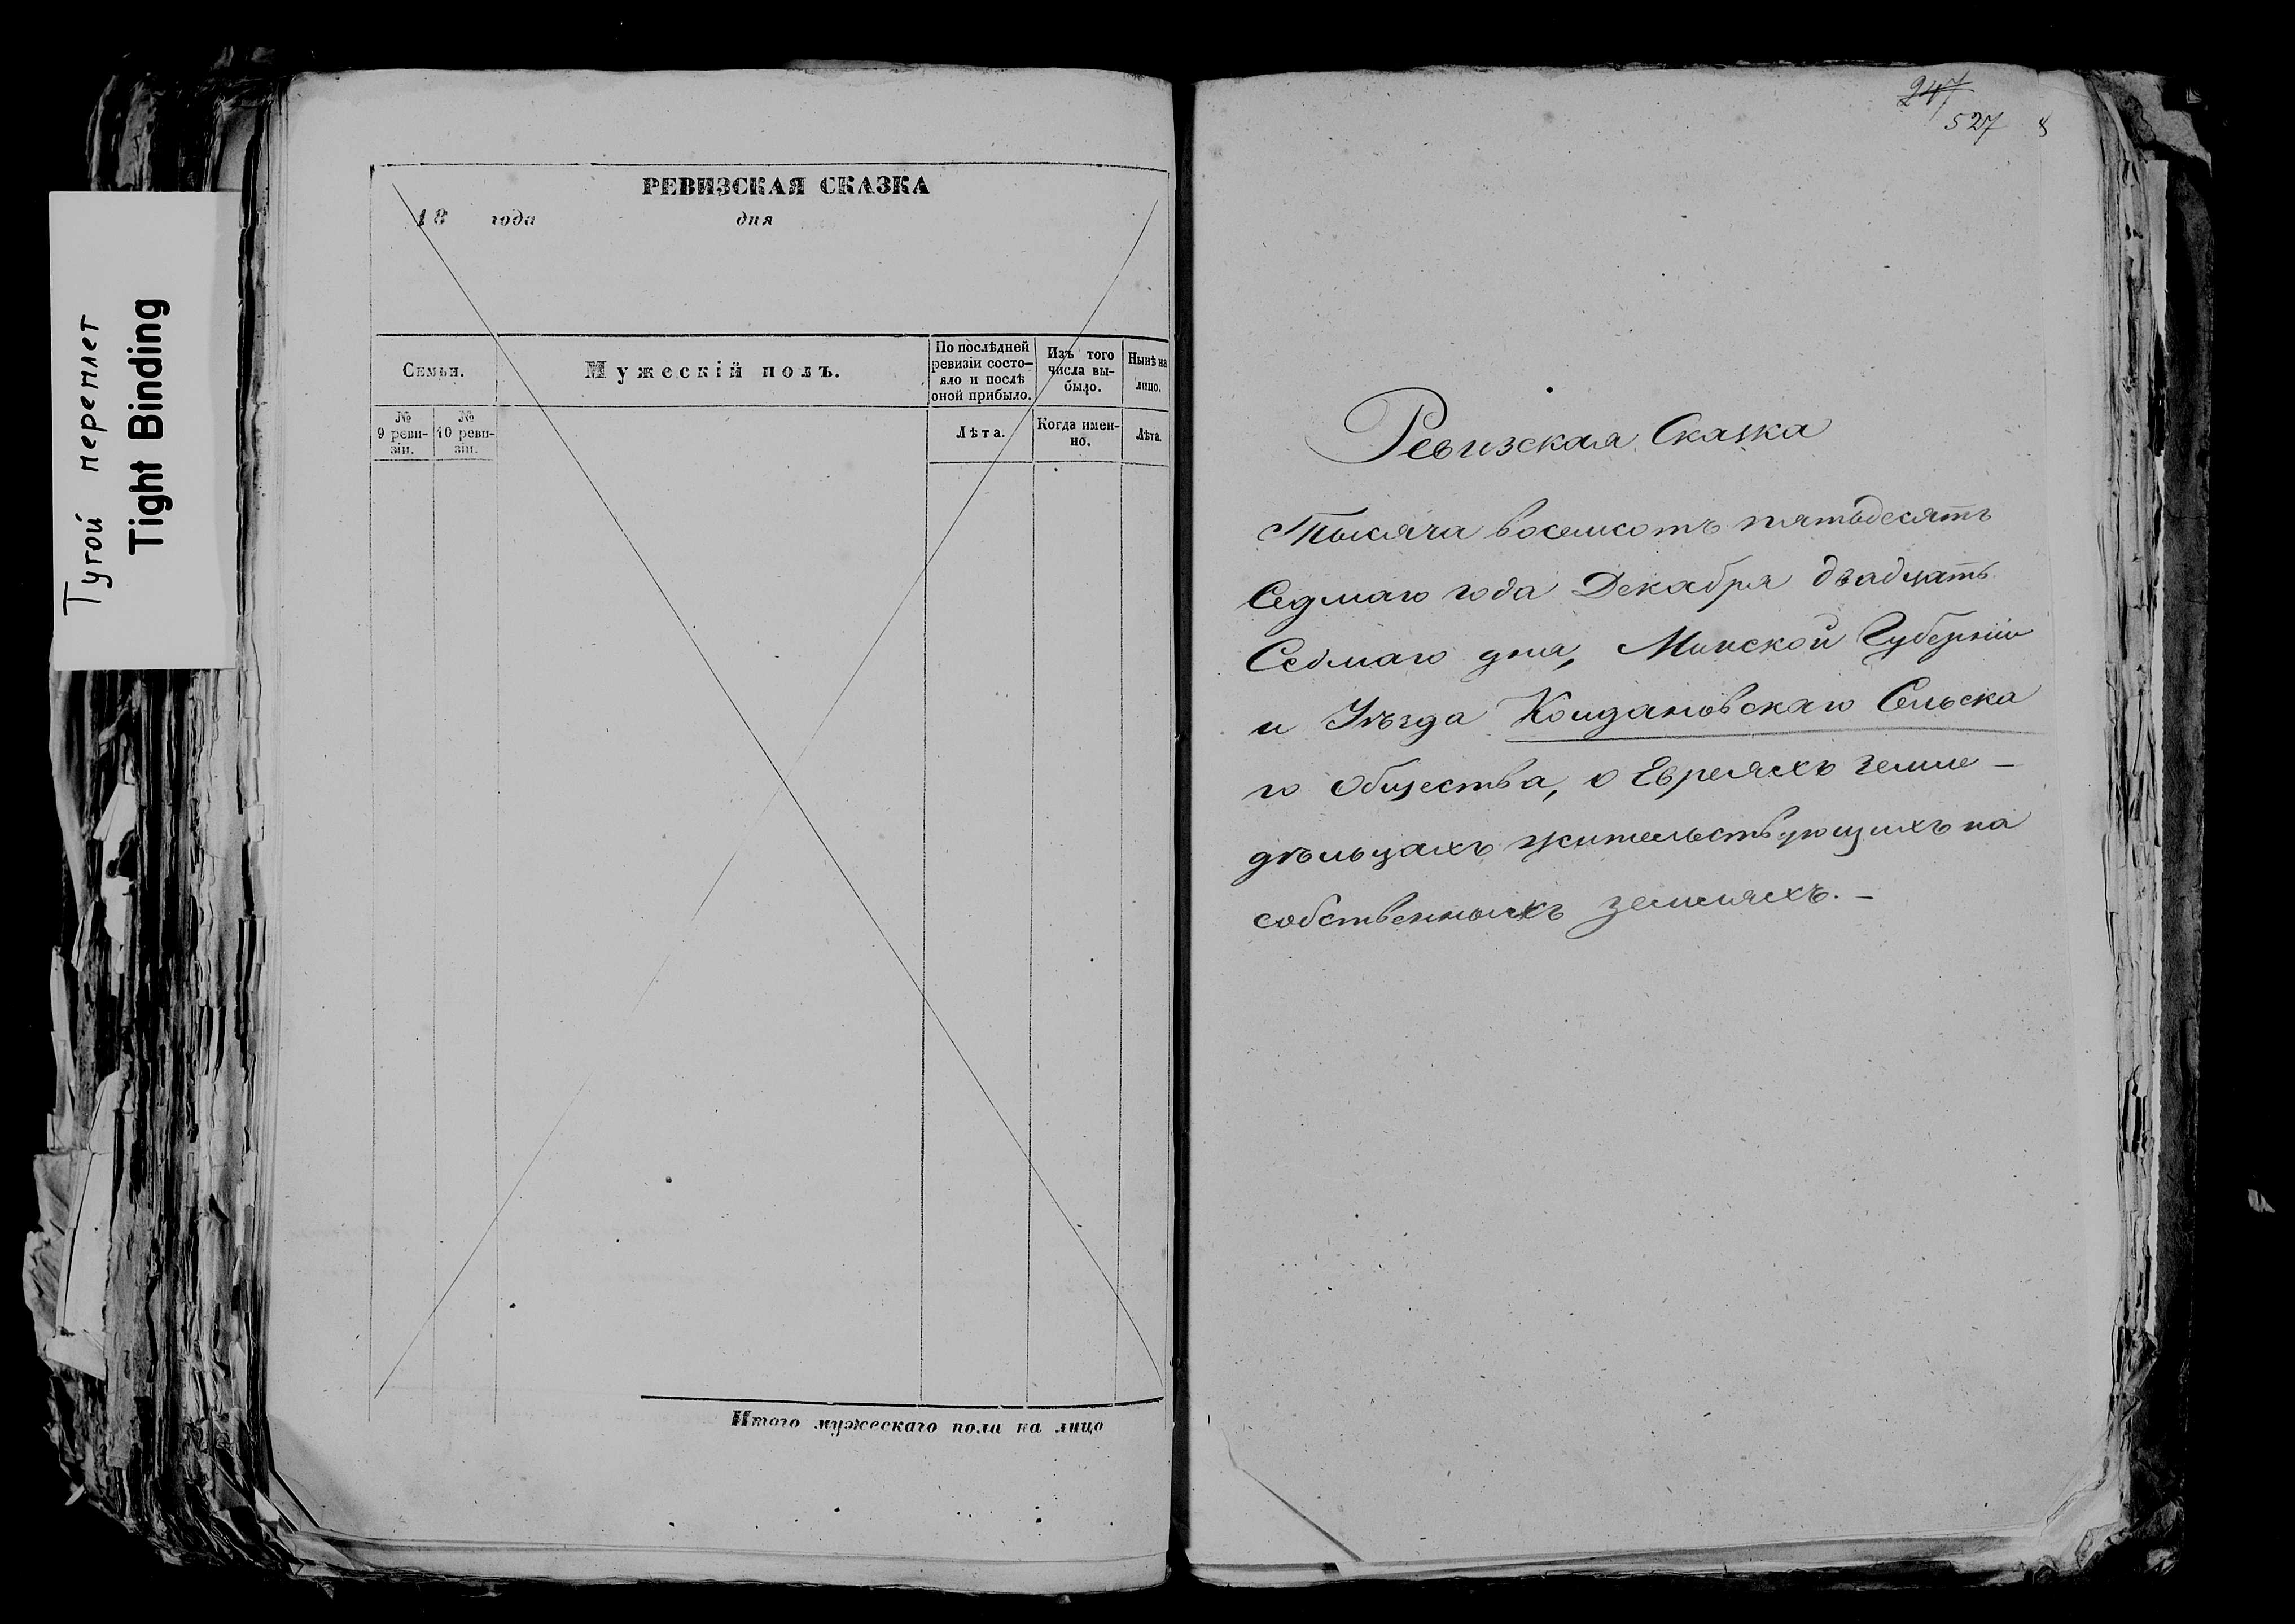 Тугой переплет
Tight Binding
РЕВИЗСКАЯ СКАЗКА
18 года дня
Семьи.
Мужескій полъ.
По послѣдней
ревизіи состо-
яло и послѣ
оной прибыло.
Изъ того
числа вы-
было.
Нынѣ на
лицо.
№
9 реви-
зіи.
№
10 реви-
зіи.
Лѣта.
Когда имен-
но.
Лѣта.
Итого мужескаго пола на лицо
247
527
Ревизская Сказка
Тысяча восемсотъ пятьдесятъ
Седмаго года Декабря двадцать
Седмаго дня, Минской Губерніи
и Уѣзда Койдановскаго Сельска
го Общества, о Евреяхъ земле-
дѣльцахъ жительствующихъ на
собственныхъ земляхъ.-